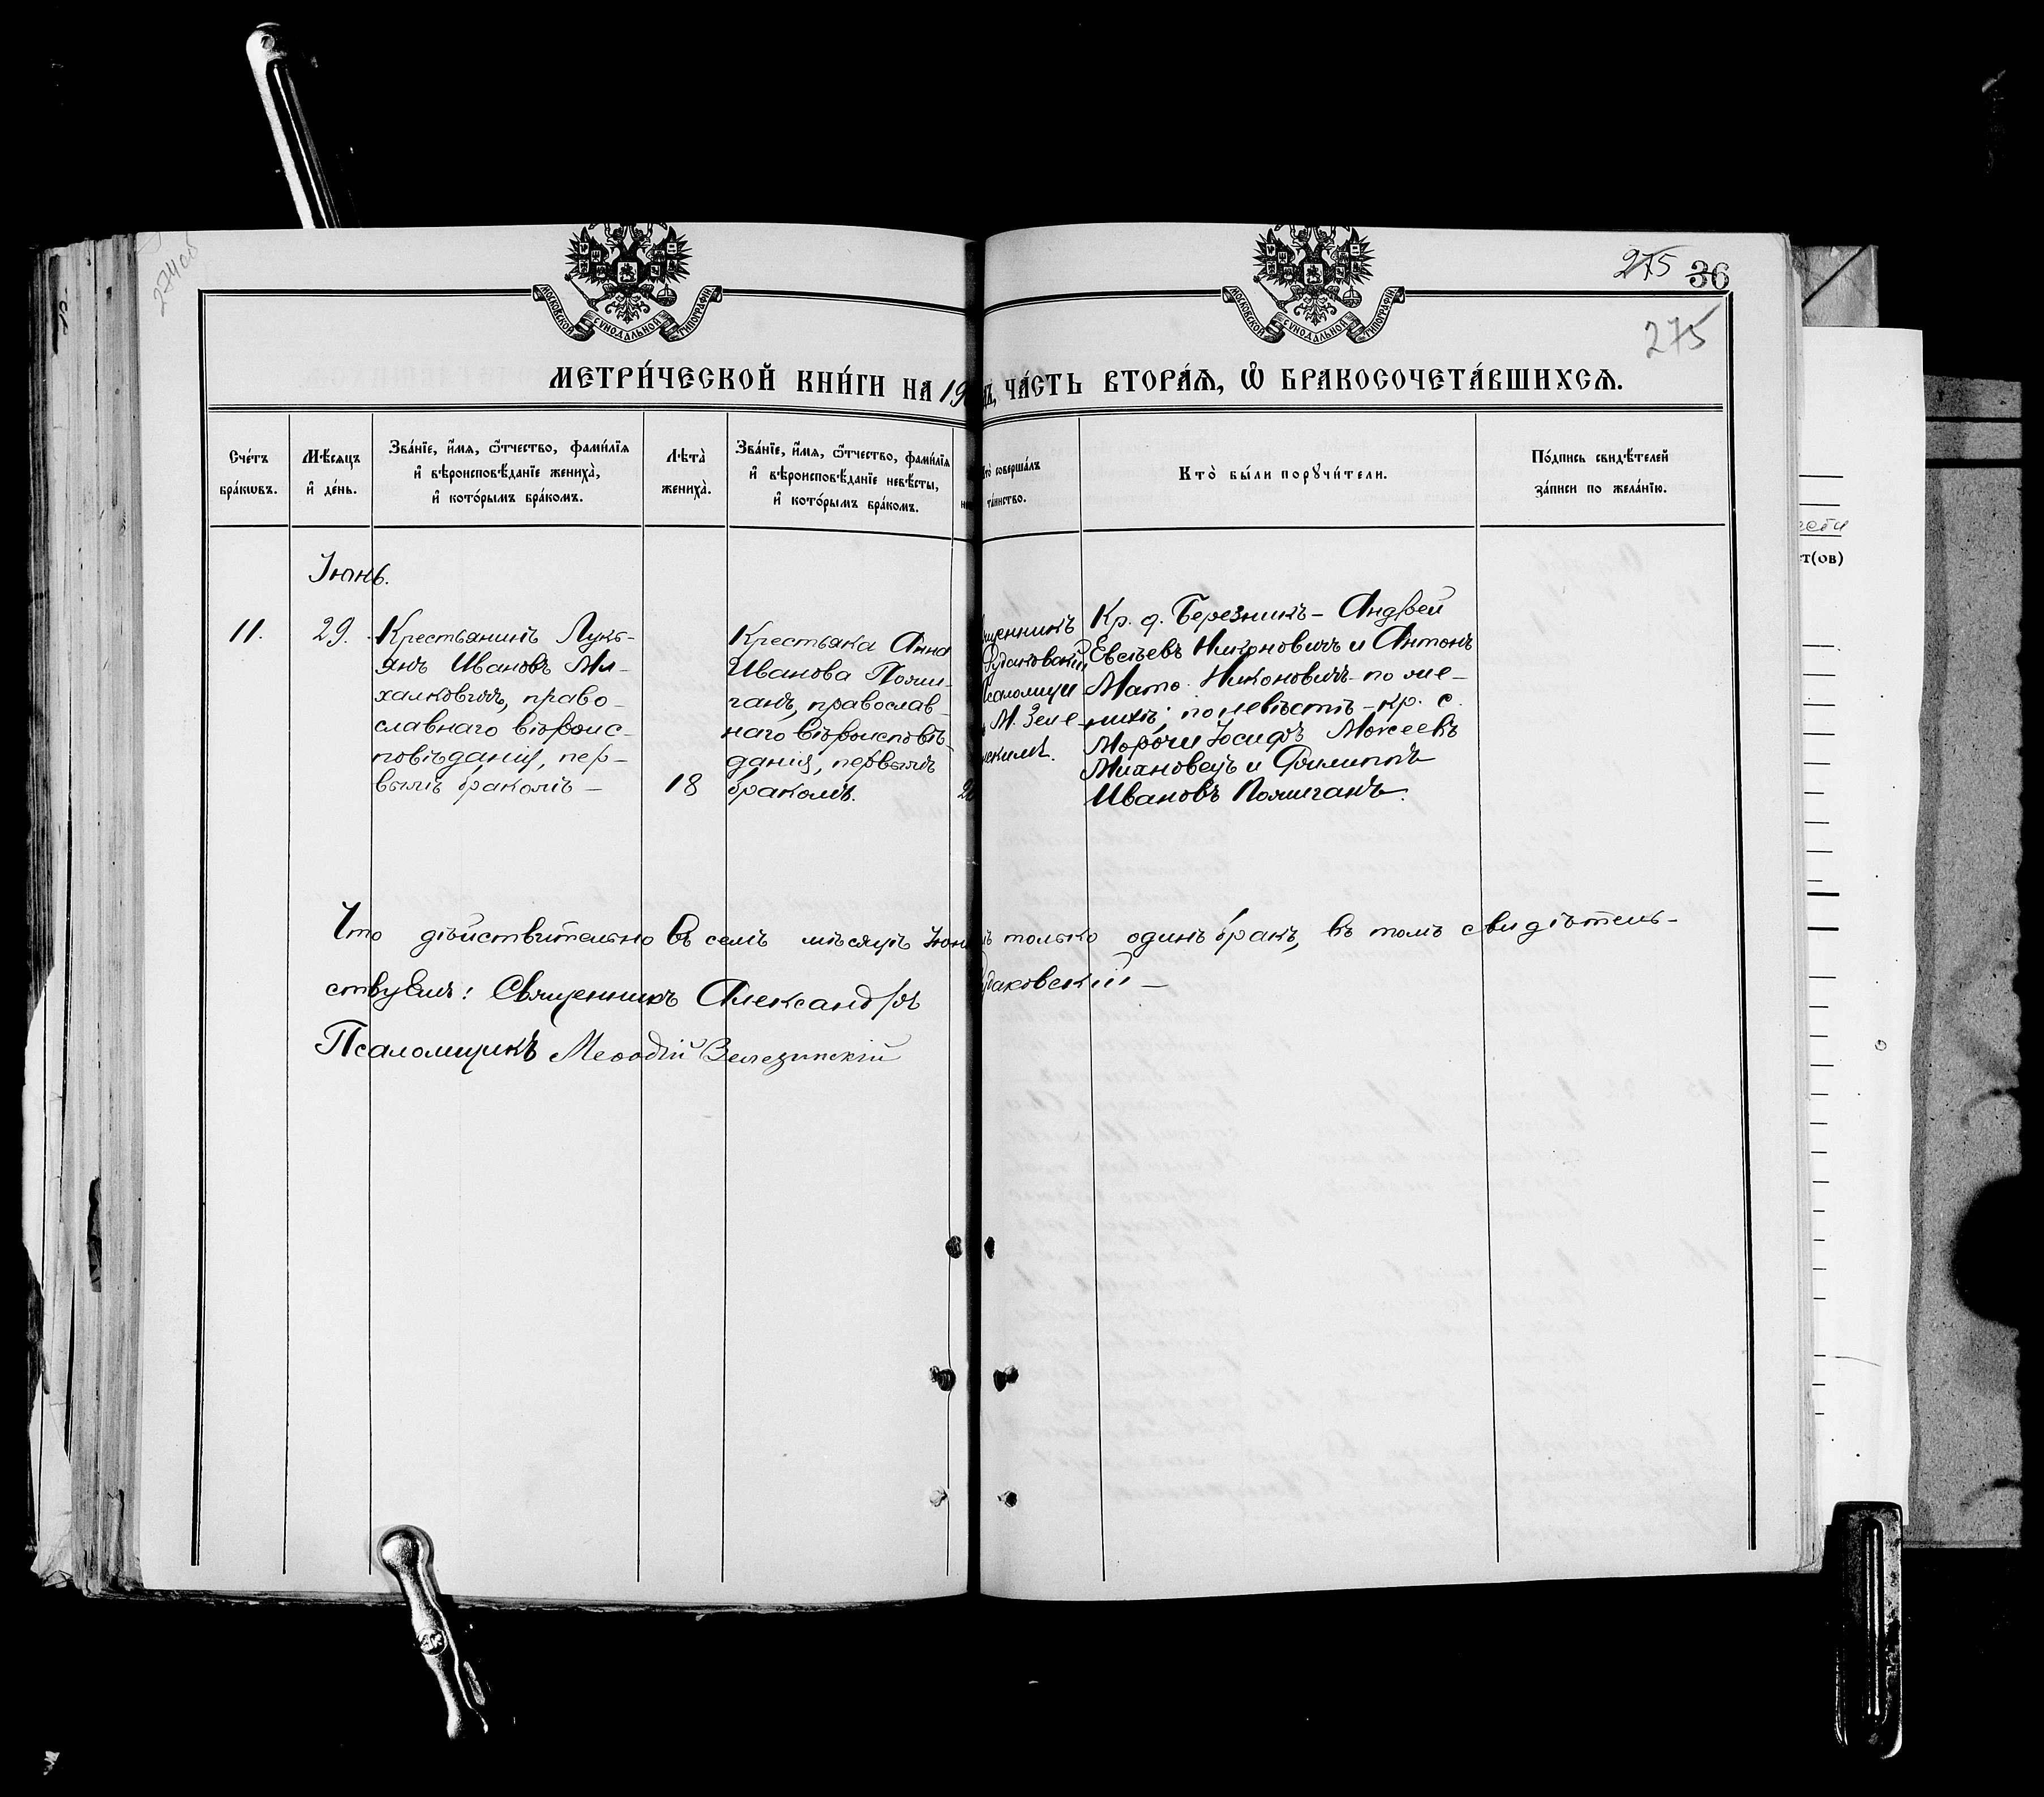 274об
275 36
275
МОСКОВСКОЙ СѴНОДАЛЬНОЙ ТИПОГРАФІИ
МОСКОВСКОЙ СѴНОДАЛЬНОЙ ТИПОГРАФІИ
МЕТРИ́ЧЕСКОЙ КНИ́ГИ НА 19
ЧА́СТЬ ВТОРА́Я, Ѽ БРАКОСОЧЕТА́ВШИХСЯ.
Сче́тъ
бра́кѡвъ.
Мѣ́сяцъ
и҆ де́нь.
Зва́нїе, и҆́мя, ѻ҆́тчество, фами́лїя
и҆ вѣроисповѣ́данїе жениха̀,
и҆ кото́рымъ бра́комъ.
Лѣта̀
жениха̀.
Зва́нїе, и҆́мя, ѻ҆́тчество, фами́лїя
и҆ вѣроисповѣ́данїе невѣ́сты,
и҆ кото́рымъ бра́комъ.
совершалъ
та́инство.
Кто̀ бы́ли порꙋчи́тели.
По́дпись свидѣ́телей
за́писи по жела́нїю.
Іюнь.
11.
29.
Крестьянинъ Лукь-
янъ Ивановъ Ми-
халковичъ, право-
славнаго вѣроис-
повѣданія, пер-
вымъ бракомъ –
18
Крестьянка Анна
Иванова Поми-
ганъ, православ-
наго вѣроисповѣ-
данія, первымъ
бракомъ.
щенникъ
Рудаковскій
Псаломщи
М. Зеле-
скимъ.
Кр. д. Березникъ – Андрей
Евсѣевъ Никоновичъ и Антонъ
Мато. Никоновичъ – по же-
нихѣ; по невѣстѣ – кр. с.
Морочи Іосифъ Моисеевъ
Михновецъ и Филиппъ
Ивановъ Помиганъ.
Что дѣйствительно въ семъ мѣсяцѣ Іюнѣ только одинъ бракъ, въ томъ свидѣтель-
ствуемъ: Священникъ Александръ Рудаковскій –
Псаломщикъ Меѳодій Зелезинскій
т(ов)